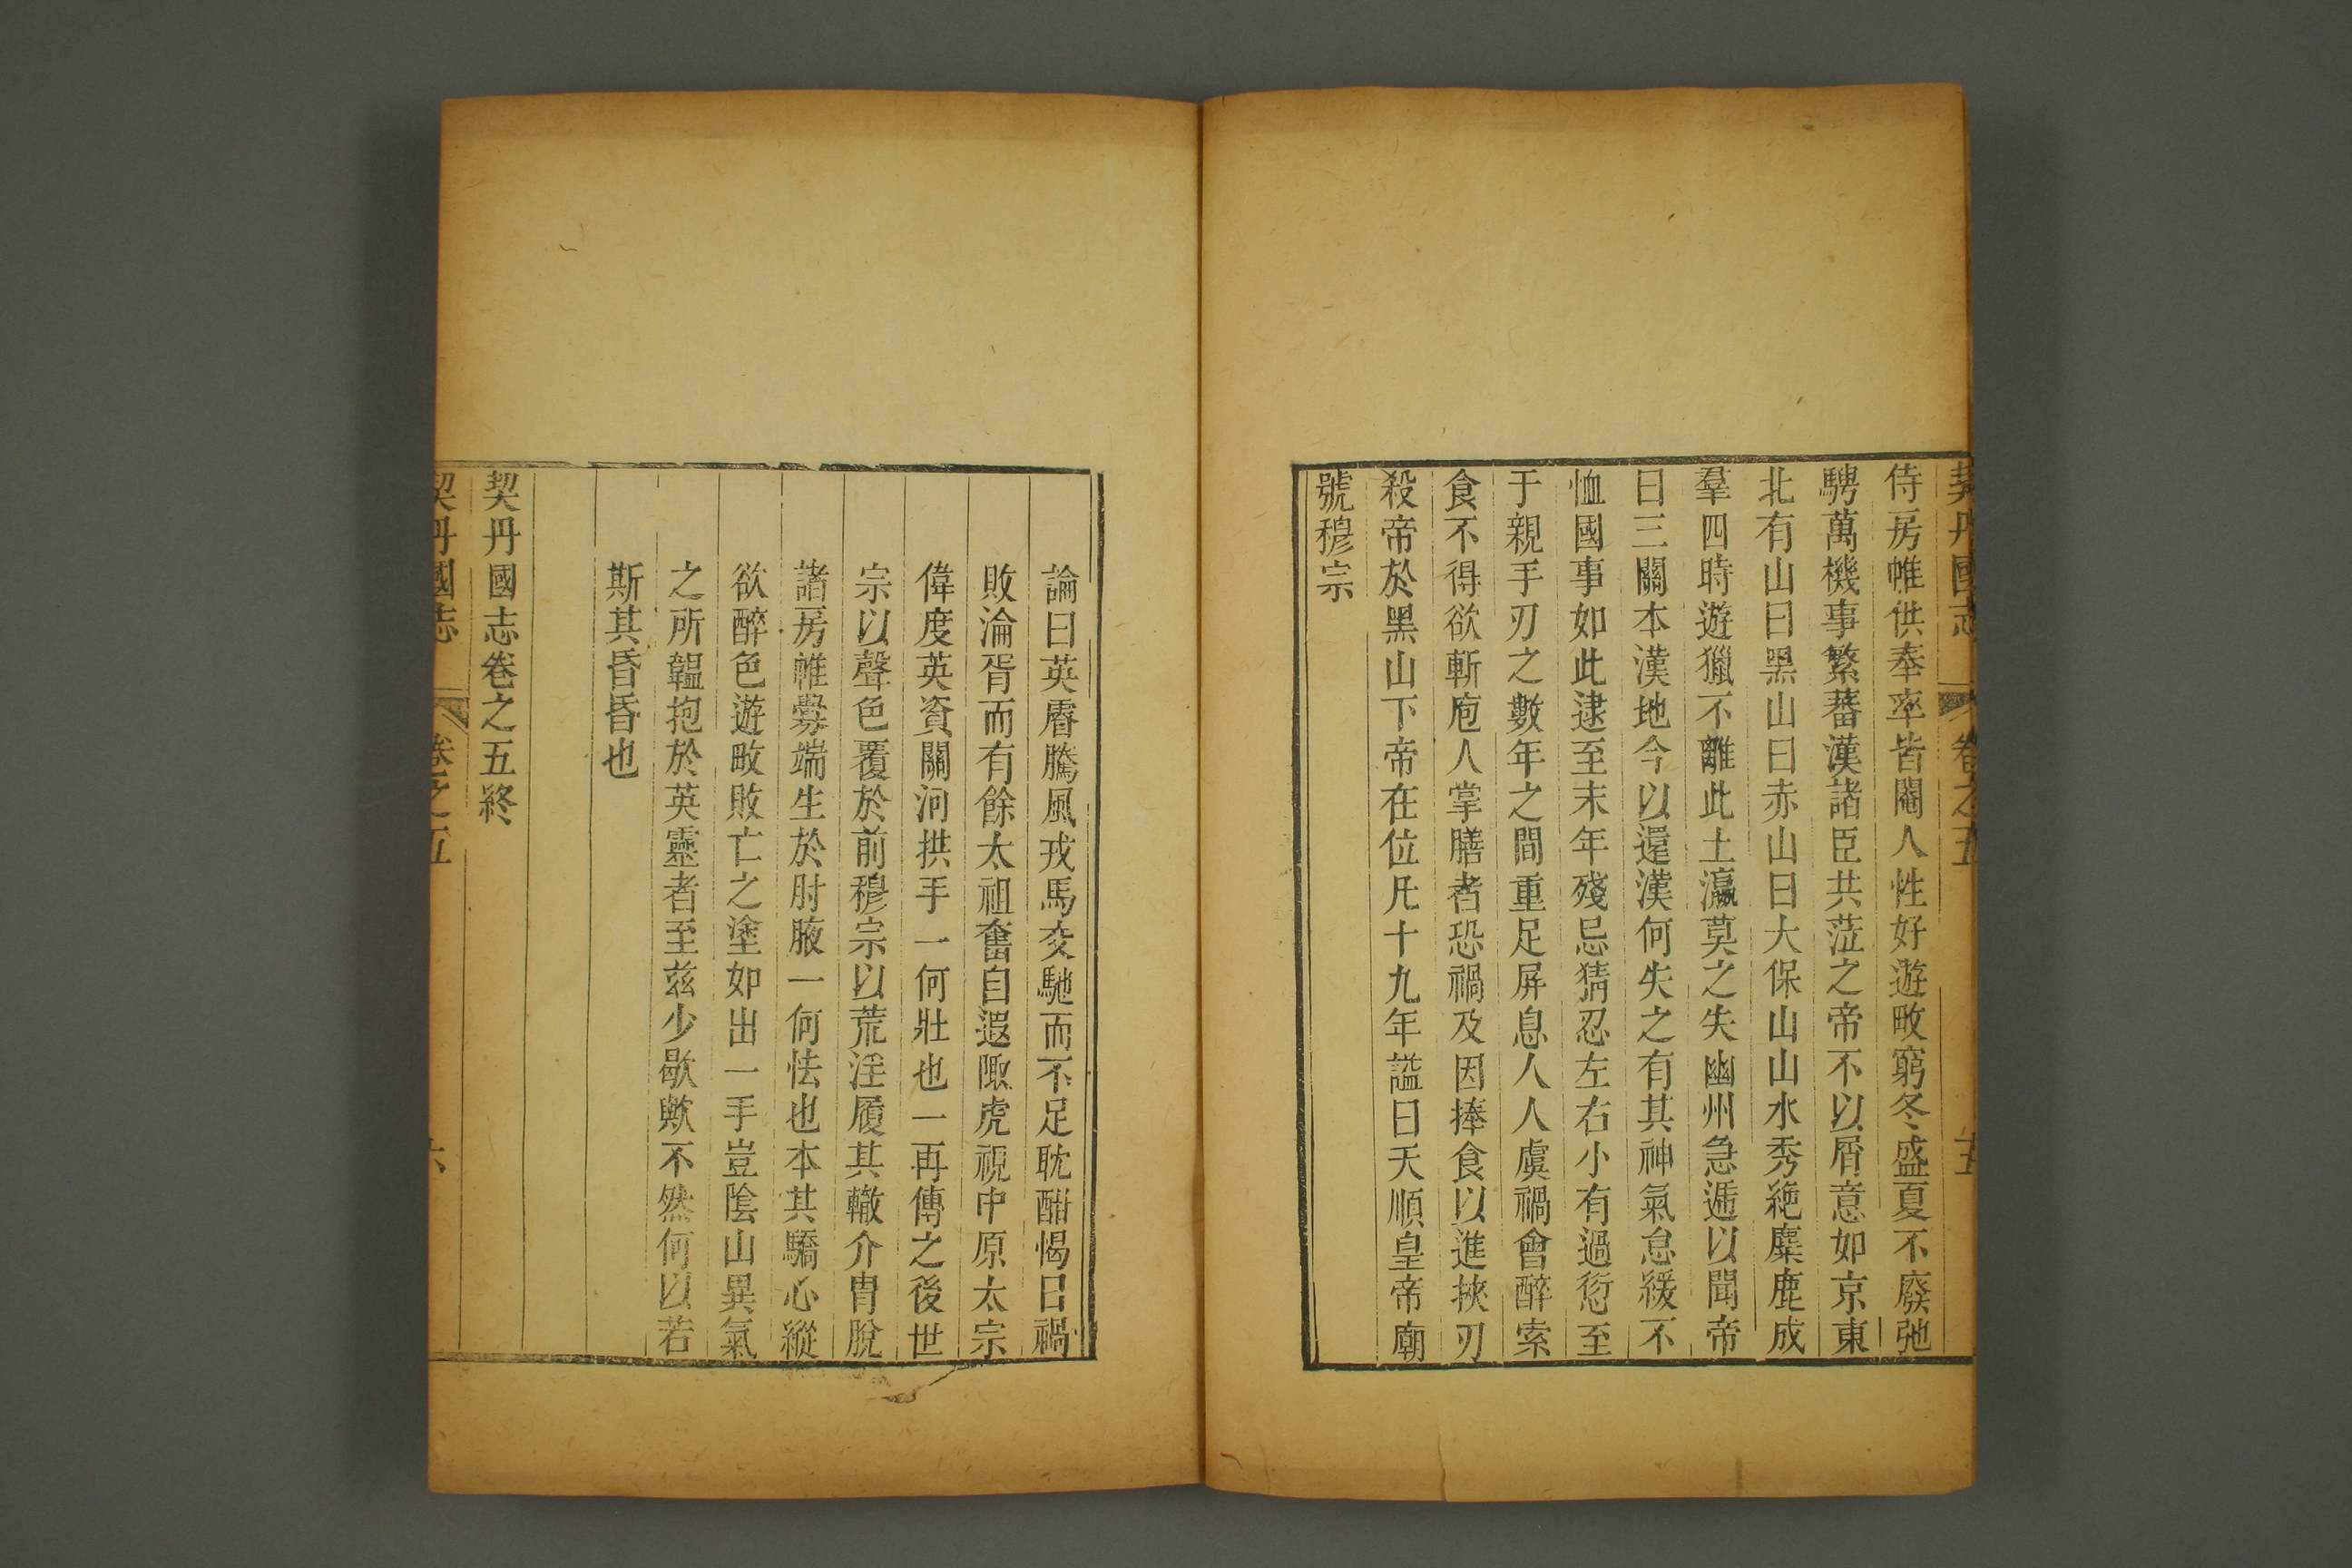 契丹國志 卷之五 五
侍房帷供奉率皆閹人性好遊畋窮冬盛夏不廢弛
騁萬機事繁蕃漢諸臣共蒞之帝不以屑意如京東
北有山曰黑山曰赤山曰大保山山水秀絶麋鹿成
羣四時遊獵不離此土瀛莫之失幽州急遞以聞帝
曰三關本漢地今以還漢何失之有其神氣怠緩不
恤國事如此逮至末年殘忌猜忍左右小有過愆至
于親手刃之數年之間重足屏息人人虞禍會醉索
食不得欲斬庖人掌膳者恐禍及因捧食以進挾刃
殺帝於黑山下帝在位凡十九年謚曰天順皇帝廟
號穆宗
論曰英唇騰風戎馬交馳而不足耽酣愒日禍
敗淪胥而有餘太祖奮自遐陬虎視中原太宗
偉度英資關河拱手一何壯也一再傳之後世
宗以聲色覆於前穆宗以荒淫履其轍介胄脫
諸房帷釁端生於肘腋一何怯也本其驕心縱
欲醉色遊畋敗亡之塗如出一手豈陰山異氣
之所韞抱於英靈者至兹少歇歟不然何以若
斯其昏昏也
契丹國志卷之五終
契丹國志 卷之五 六